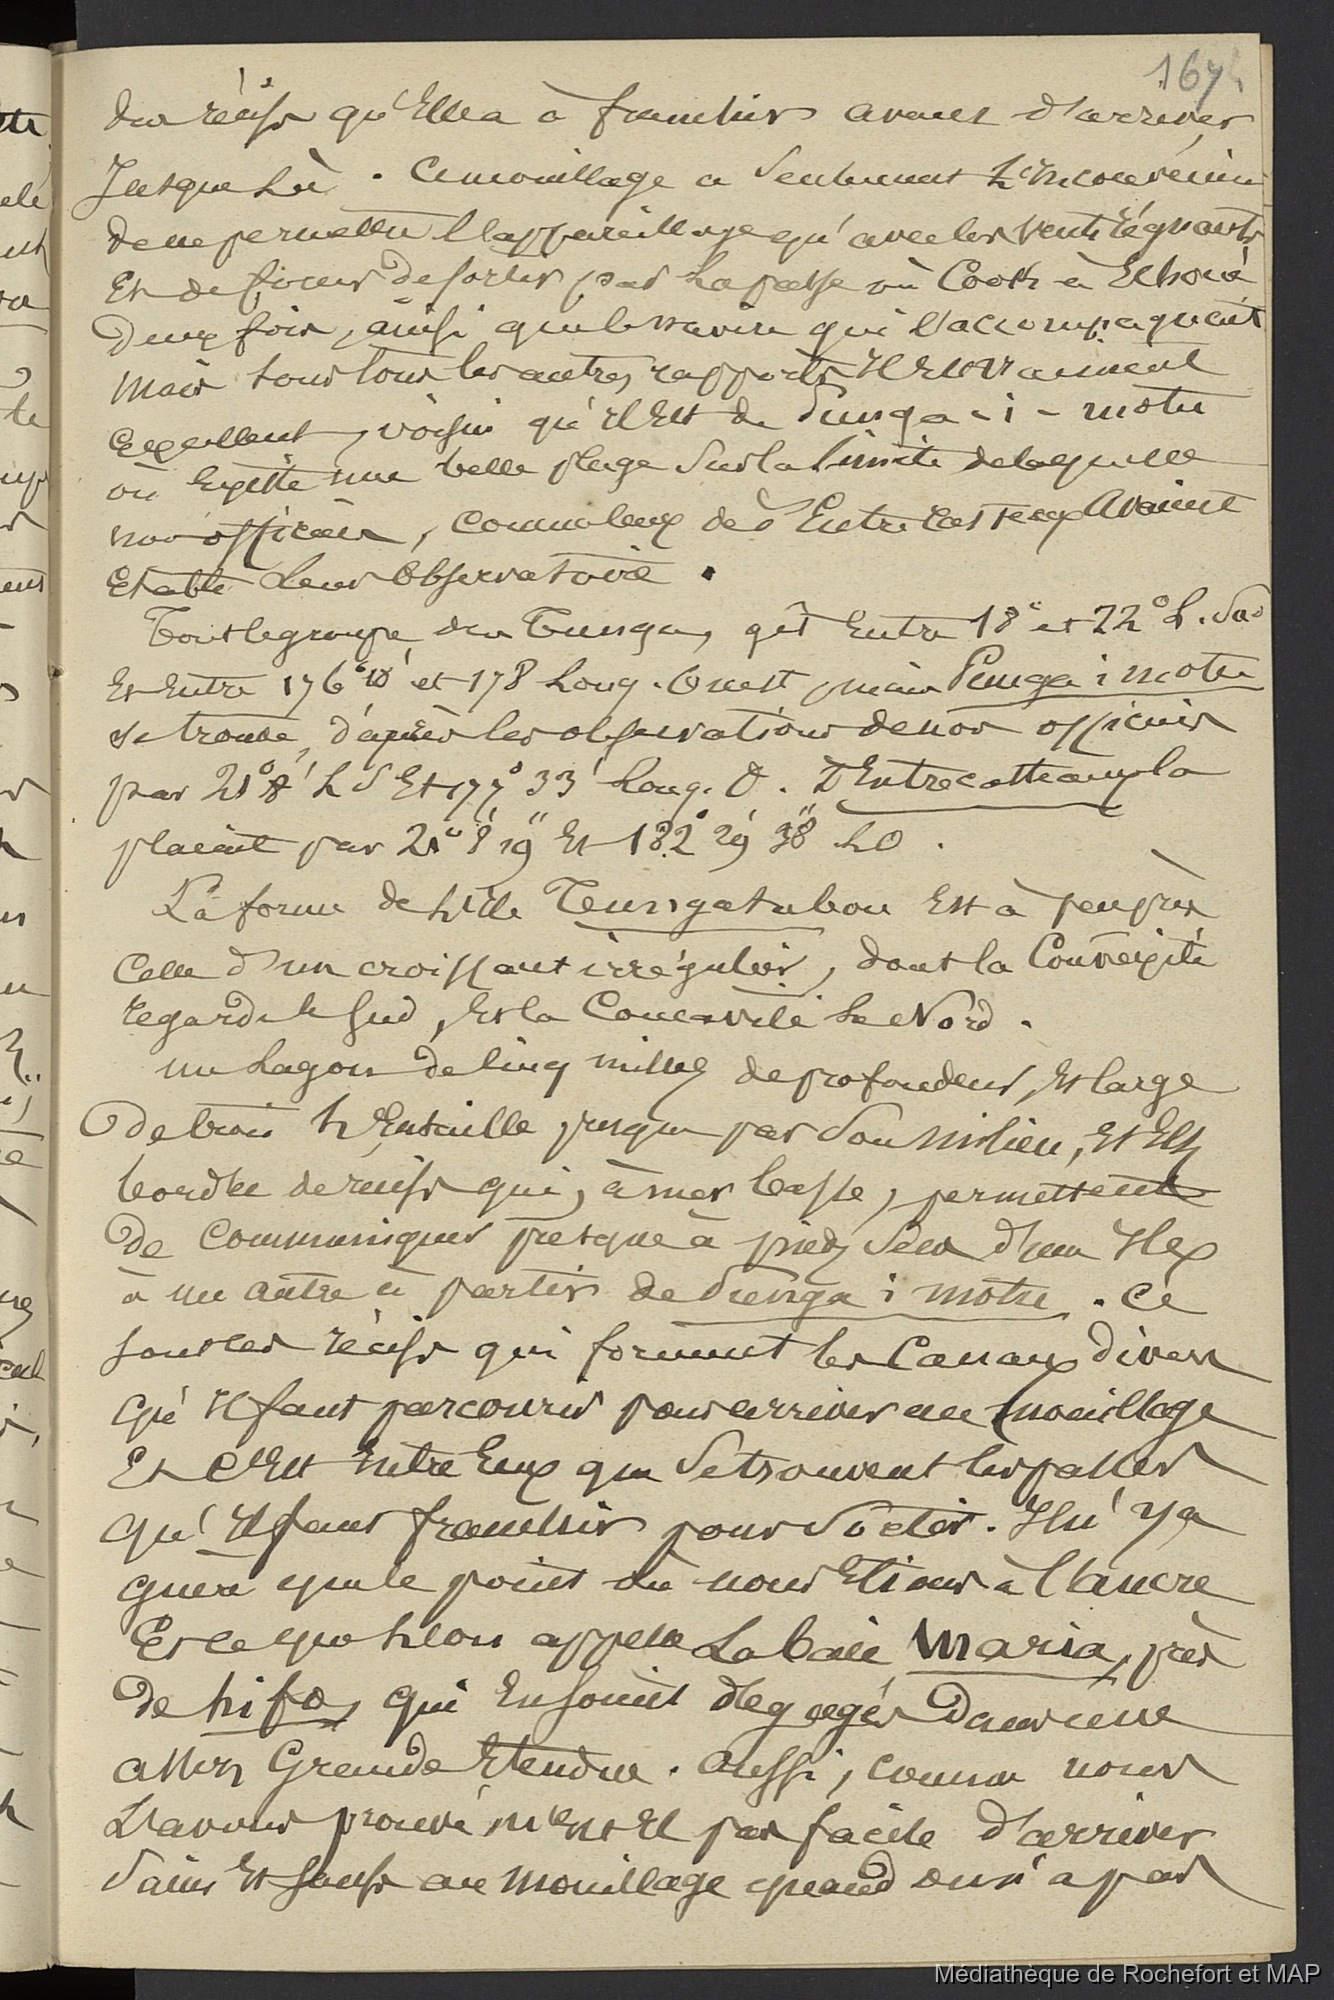 167
des récifs qu'Elle a à franchir avant d'arriver
Jusque là. Ce mouillage a seulement l'Inconvénient
de ne permettre l'appareillage qu'avec les vents régnants
Et de forcer de sortir par la passe où Cook à Echoué
Deux fois, ainsi que le navire qui l'accompagnait
Mais sous tous les autres rapports Il Est vraiment
Excellent, voisin qu'Il Est de Punga-i-motu
où Existe une belle plage sur la limite de laquelle
nos officiers, comme ceux de d'Entrecasteaux avaient
Etabli Leur Observatoire.
Tout le groupe des Tunga, gît Entre 18° et 22° L. Sud
Et Entre 176° 10' et 178 Long. Ouest, mais Punga i motu
se trouve, d'après les observations de nos officiers
par 21° 8' L S Et 177° 33' Long. O. D'Entrecasteaux la
placait par 21° 8' 19" Et 182° 29' 38" L O.
La forme de L'Ile Tungatabou Est à peu près
Celle d'un croissant irrégulier, dont la Convexité
regarde le Sud, Et la Concavité Le Nord.
un Lagon de Cinq milles de profondeur, Et large
De trois L'Entaille presque par son milieu, Et Est
bordée de récifs qui, à mer basse, permettent
De Communiquer presque à pieds secs d'une Ile
à une autre à partir de Punga i motu. Ce
sont ces récifs qui forment les Canaux Divers
qu'Il faut parcourir pour arriver au mouillage
Et C'Est Entre Eux que se trouvent les passes
qu'Il faut franchir pour sortir. Il n'y a
guère que le point où nous Etions à l'ancre
Et ce que L'on appelle La baie Maria, près
De hifo, qui En soient dégagés Dans une
assez Grande Etendue. Aussi, comme nous
L'avons prouvé, n'Est Il pas facile d'arriver
Sains Et saufs au mouillage quand on n'a pas
Médiathèque de Rochefort et MAP